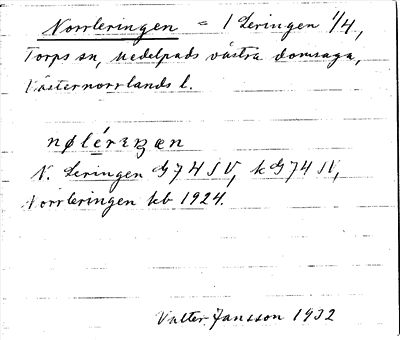 Norrleringen = 1 Leringen 1/4,
Torps sn, Medelpads västra domsaga,
Västernorrlands l.
nølériŋæn
N. Leringen G74SV, kG74SV,
Norrleringen kb 1924.
Valter Jansson 1932